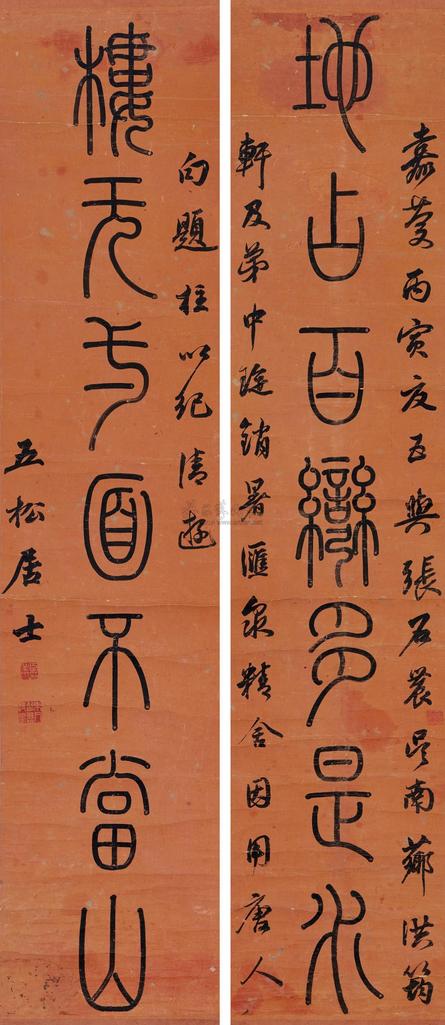 嘉慶丙寅夏五與張石農吳南薌洪筠
地占百灣多是水
軒及弟中銷暑匯泉精舍因用唐人
句題柱以紀清遊
樓无方面不當山
五松居士